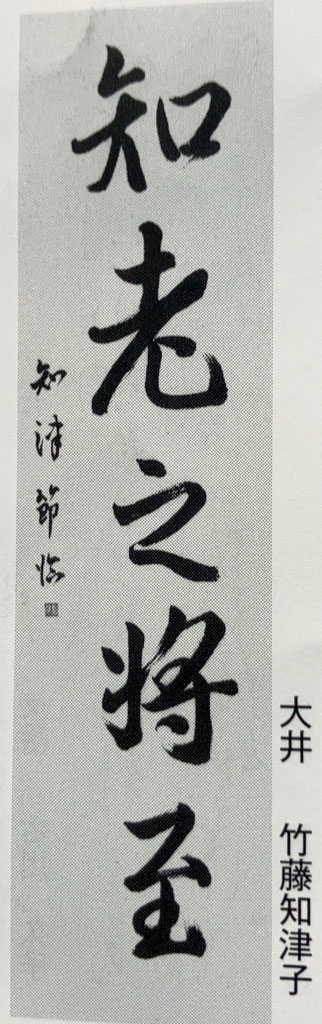 大井　竹藤知津子
知老之将至
知津節臨